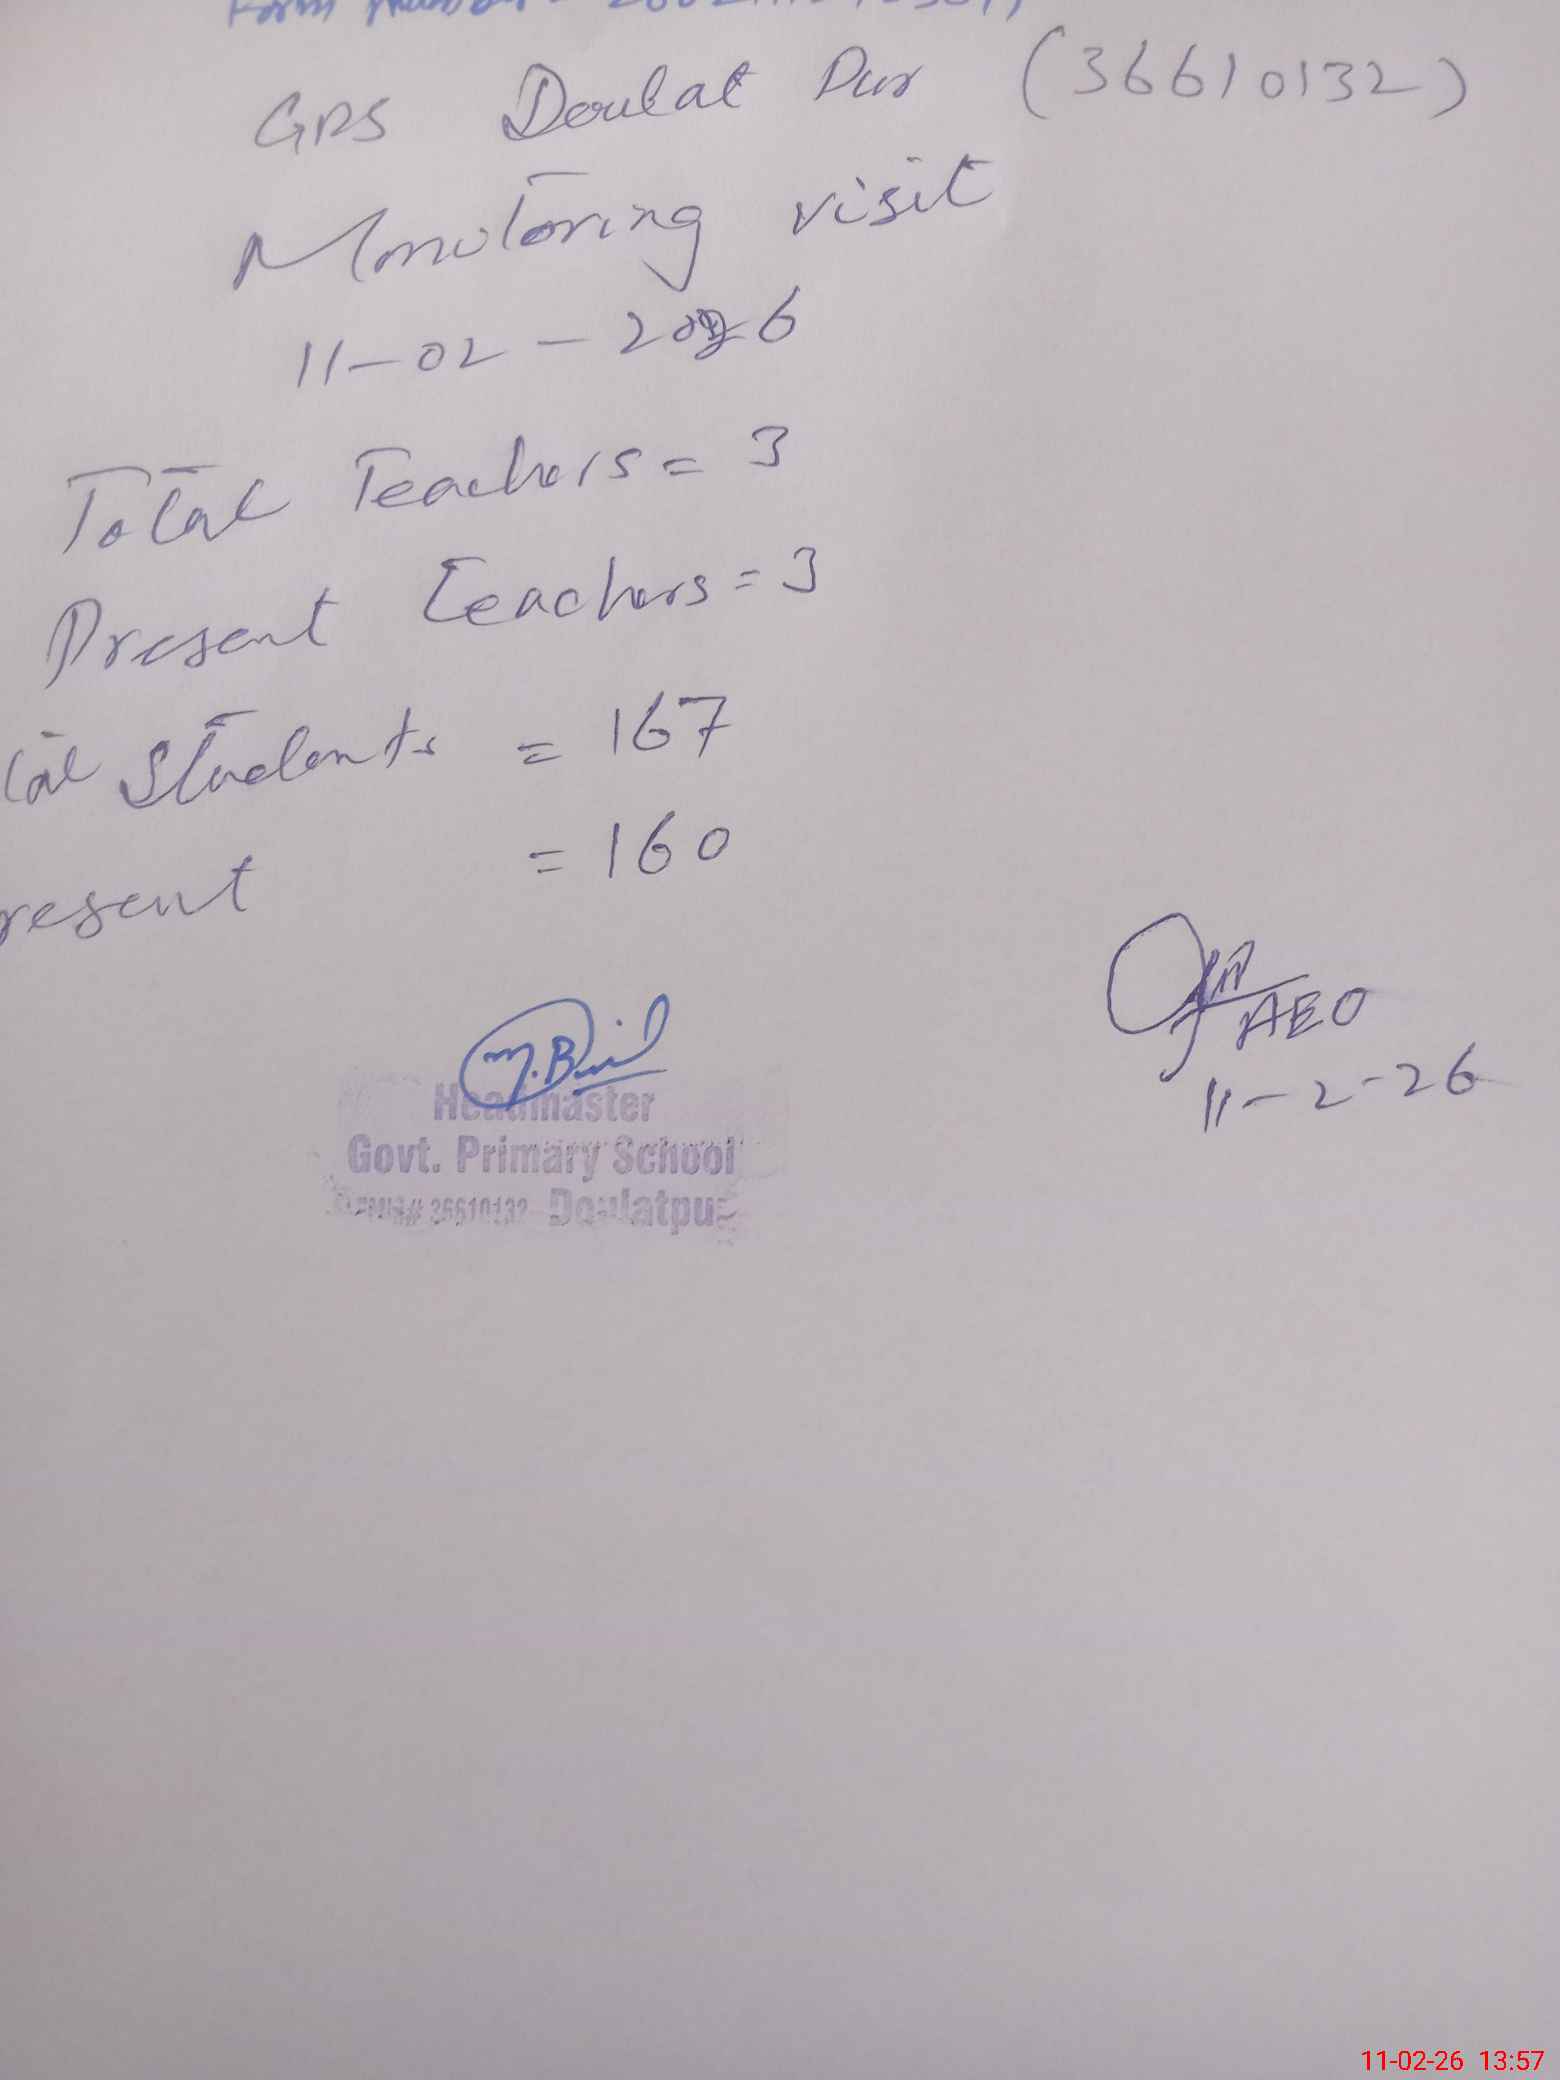 Form Number
GPS Doulat Pur (36610132)
Monitoring visit
11-02-2026
Total Teachers = 3
Present Teachers = 3
tal Students = 167
resent = 160
M.B
AEO
11-2-26
Headmaster
Govt. Primary School
EMIS# 36610132 Doulatpur
11-02-26 13:57